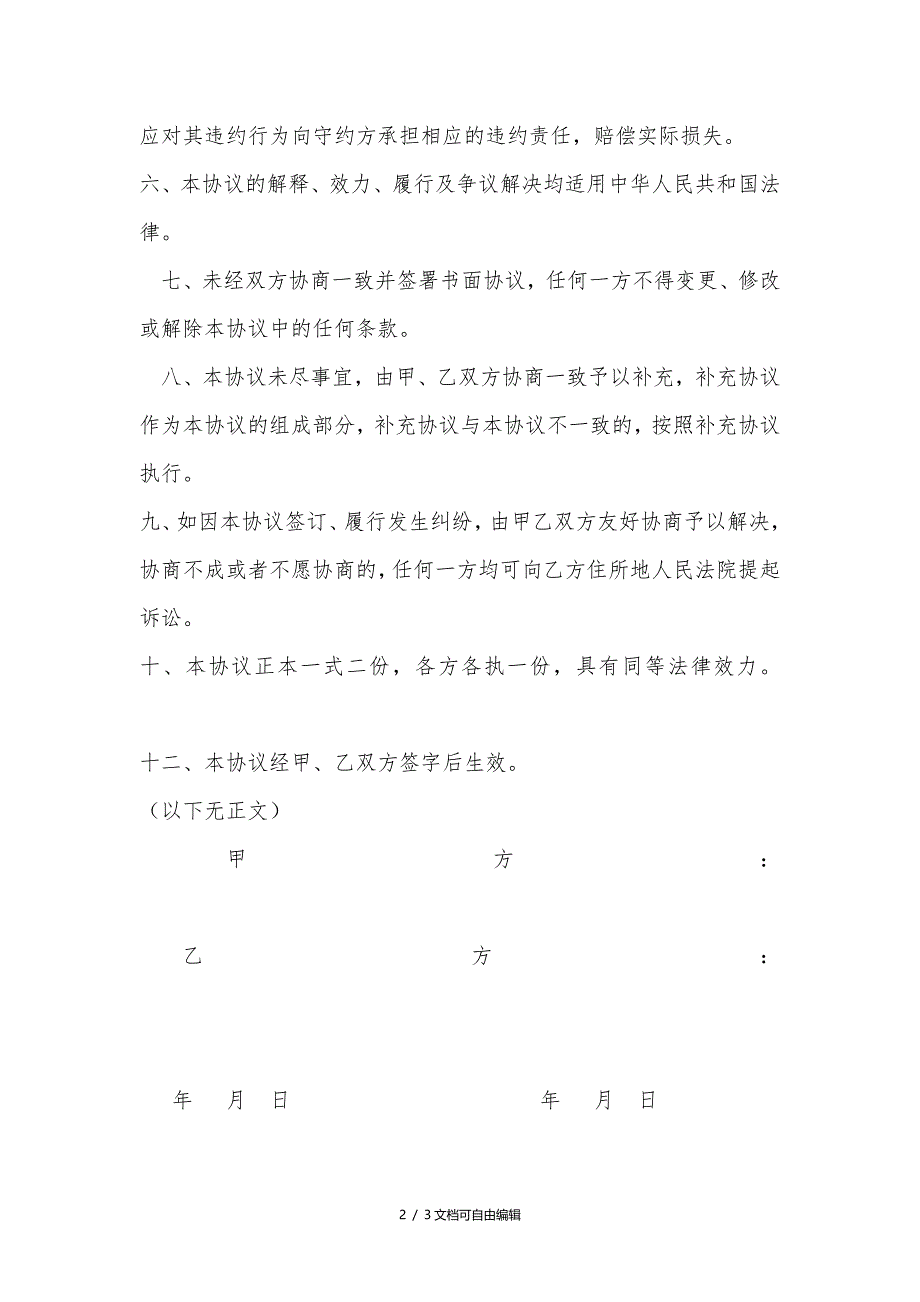 应对其违约行为向守约方承担相应的违约责任，赔偿实际损失。
六、本协议的解释、效力、履行及争议解决均适用中华人民共和国法
律。
七、未经双方协商一致并签署书面协议，任何一方不得变更、修改
或解除本协议中的任何条款。
八、本协议未尽事宜，由甲、乙双方协商一致予以补充，补充协议
作为本协议的组成部分，补充协议与本协议不一致的，按照补充协议
执行。
九、如因本协议签订、履行发生纠纷，由甲乙双方友好协商予以解决，
协商不成或者不愿协商的，任何一方均可向乙方住所地人民法院提起
诉讼。
十、本协议正本一式二份，各方各执一份，具有同等法律效力。
十二、本协议经甲、乙双方签字后生效。
（以下无正文）
甲 方 ：
乙 方 ：
年 月 日 年 月 日
2 / 3文档可自由编辑